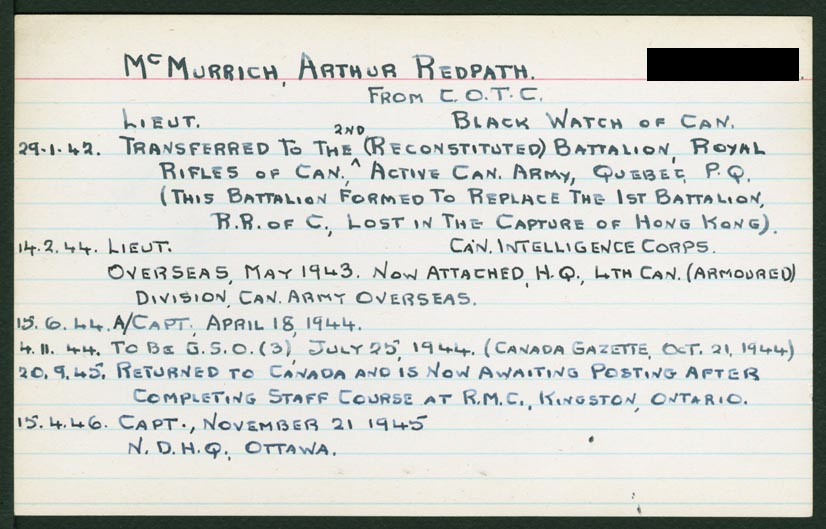 McMURRICH, ARTHUR REDPATH.
FROM C.O.T.C.
LIEUT. BLACK WATCH OF CAN.
29.1.42. TRANSFERRED TO THE 2ND (RECONSTITUTED) BATTALION, ROYAL
RIFLES OF CAN., ^ ACTIVE CAN. ARMY, QUEBEC, P.Q.
(THIS BATTALION FORMED TO REPLACE THE 1ST BATTALION,
R.R. OF C., LOST IN THE CAPTURE OF HONG KONG).
14.2.44. LIEUT. CAN. INTELLIGENCE CORPS.
OVERSEAS, MAY 1943. NOW ATTACHED, H.Q., 4TH CAN. (ARMOURED)
DIVISION, CAN. ARMY OVERSEAS.
15.6.44. A/CAPT., APRIL 18, 1944.
4.11.44. TO BE G.S.O.(3), JULY 25, 1944. (CANADA GAZETTE, OCT. 21, 1944)
20.9.45. RETURNED TO CANADA AND IS NOW AWAITING POSTING AFTER
COMPLETING STAFF COURSE AT R.M.C., KINGSTON, ONTARIO.
15.4.46. CAPT., NOVEMBER 21 1945
N.D.H.Q., OTTAWA.